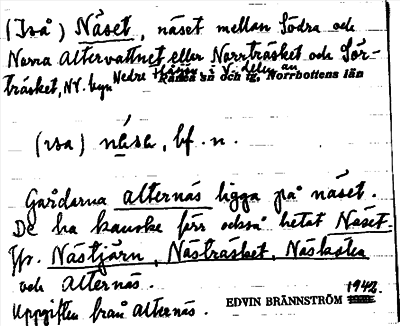 (Iså) Näset, näset mellan Södra och
Norra Altervattnet eller Norrträsket och Sör-
träsket, NV. byn Nedre i V. delen av
Råneå sn och tg, Norrbottens län
(isa) nä́sa, bf. n.
Gårdarna Alternäs ligga på näset.
De ha kanske förr också hetat Näset.
Jfr. Nästjärn, Nästräsket, Näskälen
och Alternäs.
Uppgiften från Alternäs.
EDVIN BRÄNNSTRÖM 1942.